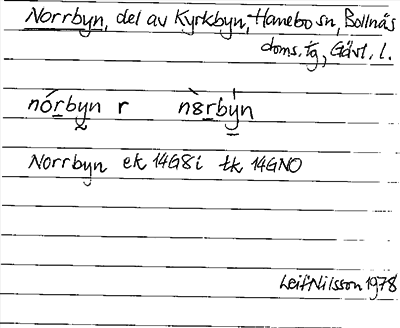 Norrbyn, del av Kyrkbyn, Hanebo sn, Bollnäs
doms. tg, Gävl. l.
nórbyn r nòrbýn
Norrbyn ek 14G8i tk 14GNO
Leif Nilsson 1978